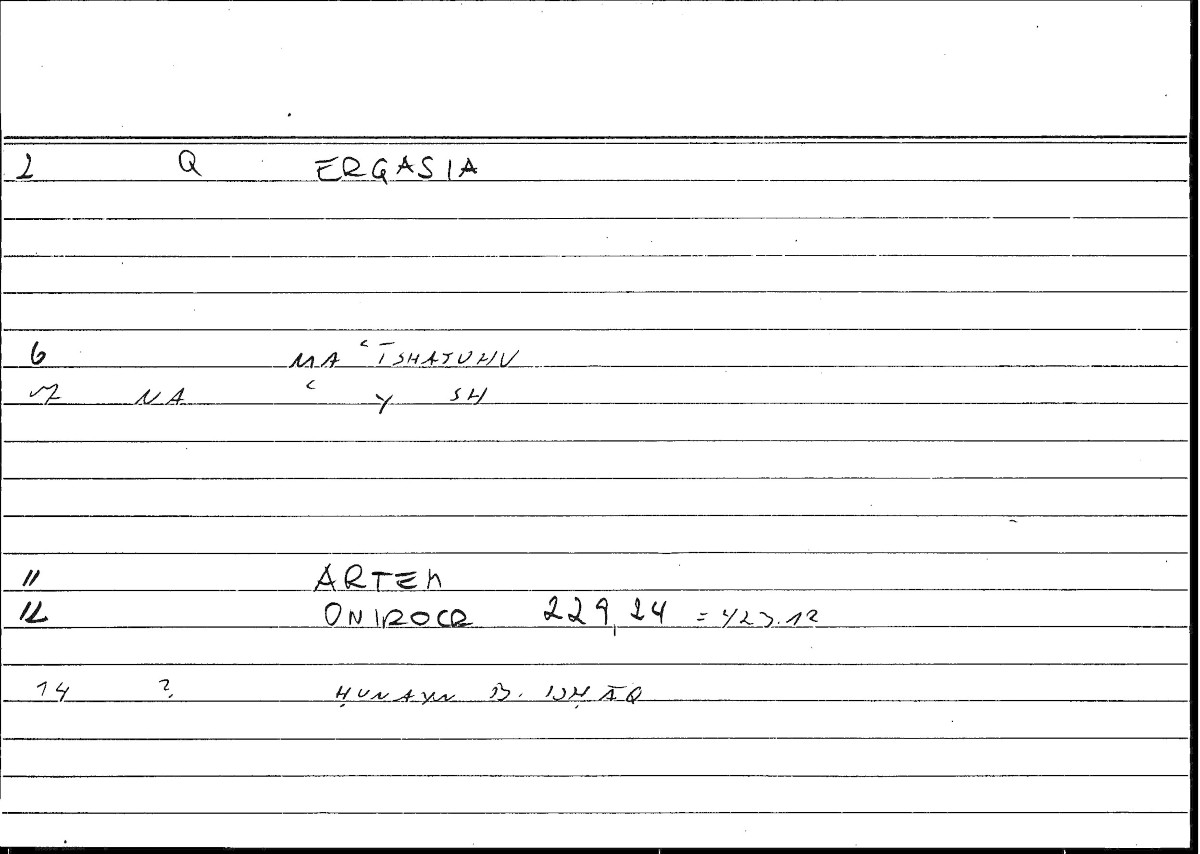 2 Q ERGASIA
6 MA ʿĪSHATUHU
7 NA ʿ Y SH
11 ARTEM
12 ONIROCR 229,24 = 423.12
14 ? ḤUNAYN B. ISḤĀQ